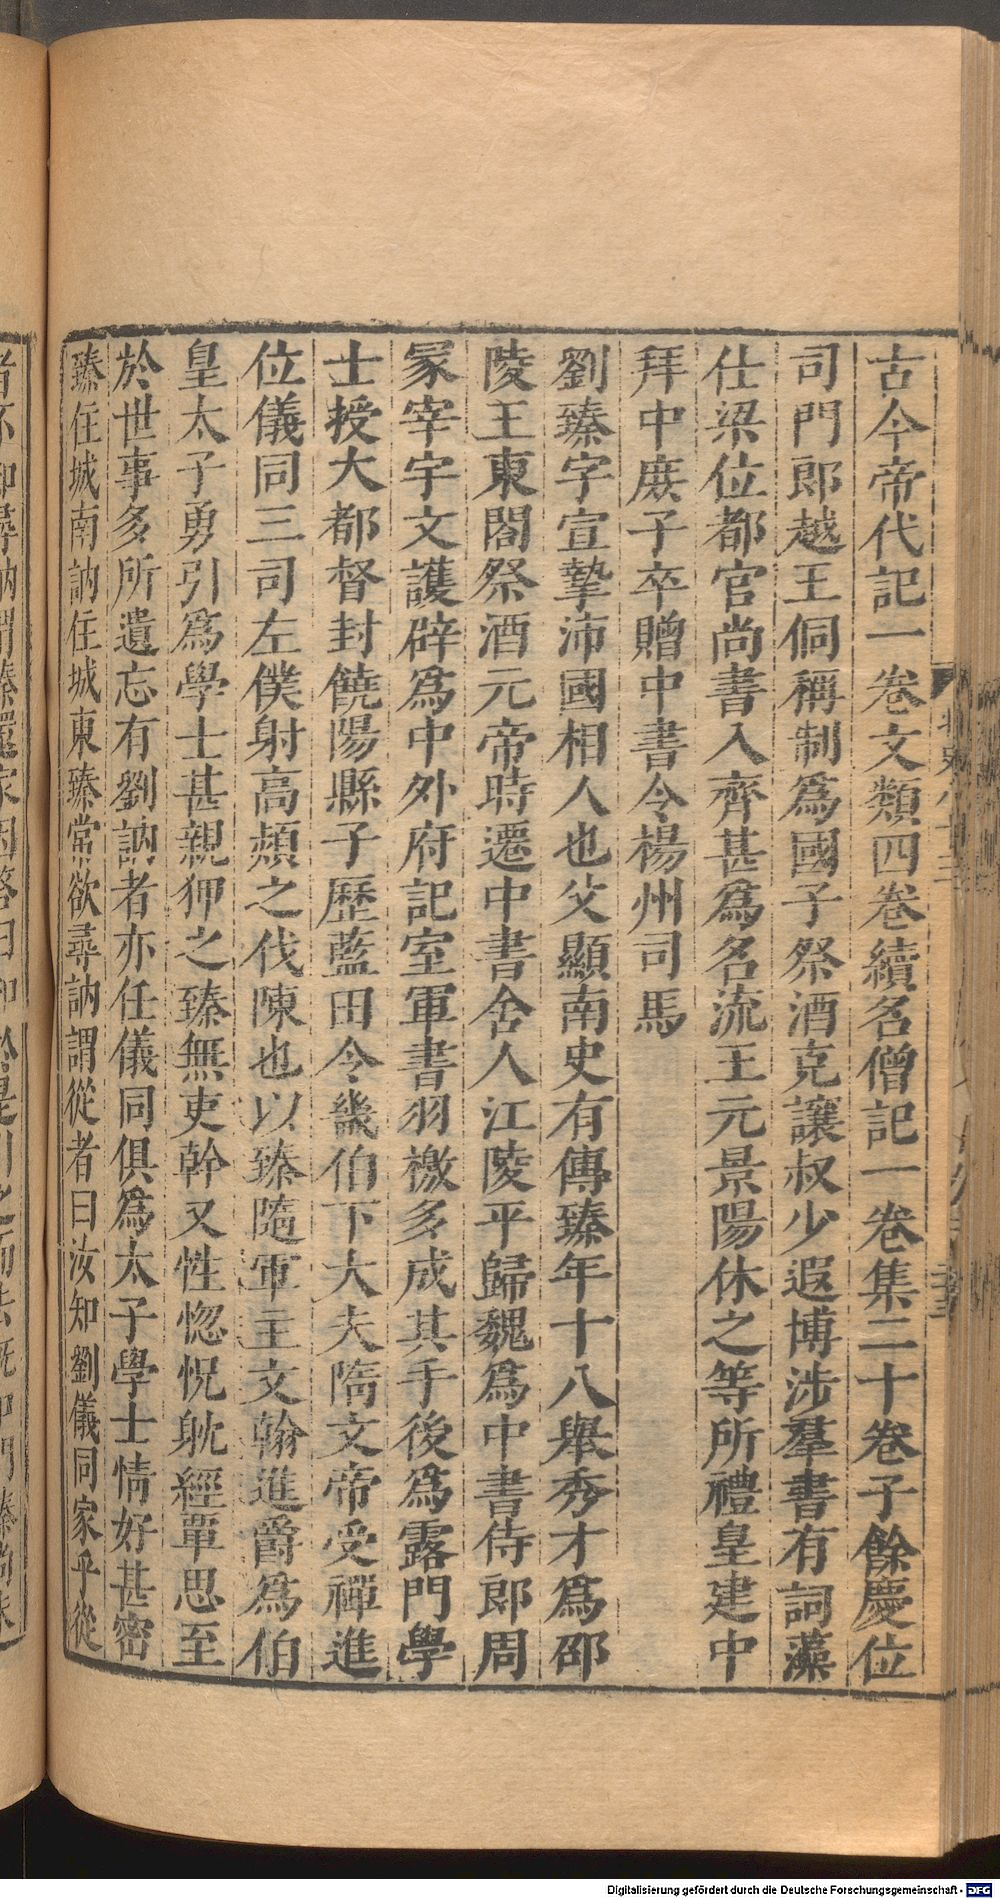 古今帝代記一卷文類四卷續名僧記一卷集二十卷子餘慶位
司門郎越王侗稱制爲國子祭酒克讓叔少遐博涉羣書有詞藻
仕梁位都官尚書入齊甚爲名流王元景陽休之等所禮皇建中
拜中庶子卒贈中書令楊州司馬
劉臻字宣摯沛國相人也父顯南史有傳臻年十八舉秀才爲邵
陵王東閤祭酒元帝時遷中書舍人江陵平歸魏爲中書侍郎周
冢宰宇文護辟爲中外府記室軍書羽檄多成其手後爲露門學
士授大都督封饒陽縣子歷藍田令畿伯下大夫隋文帝受禪進
位儀同三司左僕射高熲之伐陳也以臻隨軍主文翰進爵爲伯
皇太子勇引爲學士甚親狎之臻無吏幹又性惚怳躭經覃思至
於世事多所遺忘有劉訥者亦任儀同俱爲太子學士情好甚密
臻住城南訥住城東臻常欲尋訥謂從者曰汝知劉儀同家乎從
Digitalisierung gefördert durch die Deutsche Forschungsgemeinschaft - DFG